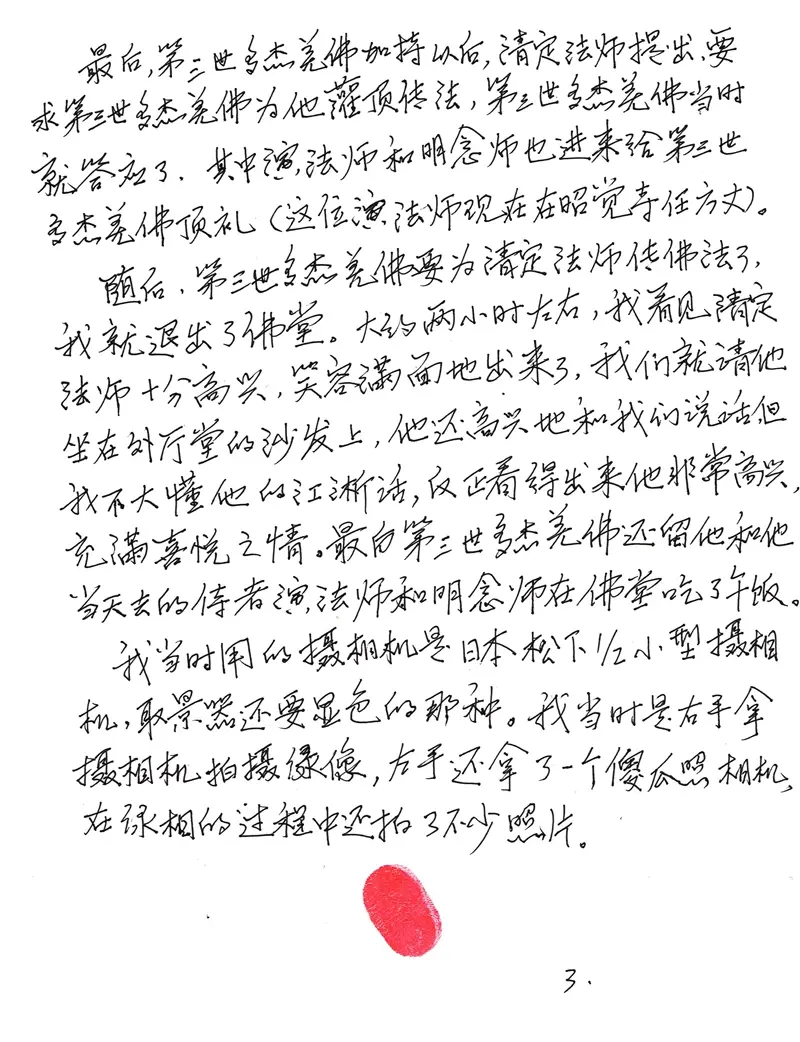 最后,第三世多杰羌佛加持以后,清定法师提出,要
求第三世多杰羌佛为他灌顶传法,第三世多杰羌佛当时
就答应了.其中演法师和明念师也进来给第三世
多杰羌佛顶礼(这位演法师现在在昭觉寺任方丈)。
随后,第三世多杰羌佛要为清定法师传佛法了,
我就退出了佛堂。大约两小时左右,我看见清定
法师十分高兴,笑容满面地出来了,我们就请他
坐在外厅堂的沙发上,他还高兴地和我们说话,但
我不大懂他的江淅话,反正看得出来他非常高兴,
充满喜悦之情。最后第三世多杰羌佛还留他和他
当天去的侍者演法师和明念师在佛堂吃了午饭。
我当时用的摄相机是日本松下1/2小型摄相
机,取景器还要显色的那种。我当时是右手拿
摄相机拍摄录像,左手还拿了一个傻瓜照相机,
在录相的过程中还拍了不少照片。
3.